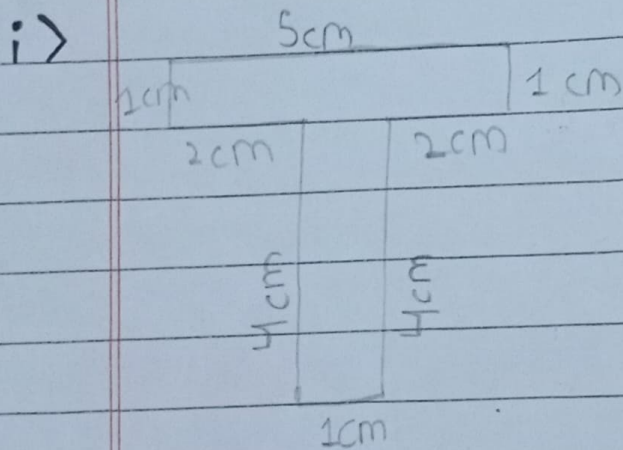 i>
5cm
1cm
1 cm
2cm
2cm
4cm
4cm
1cm